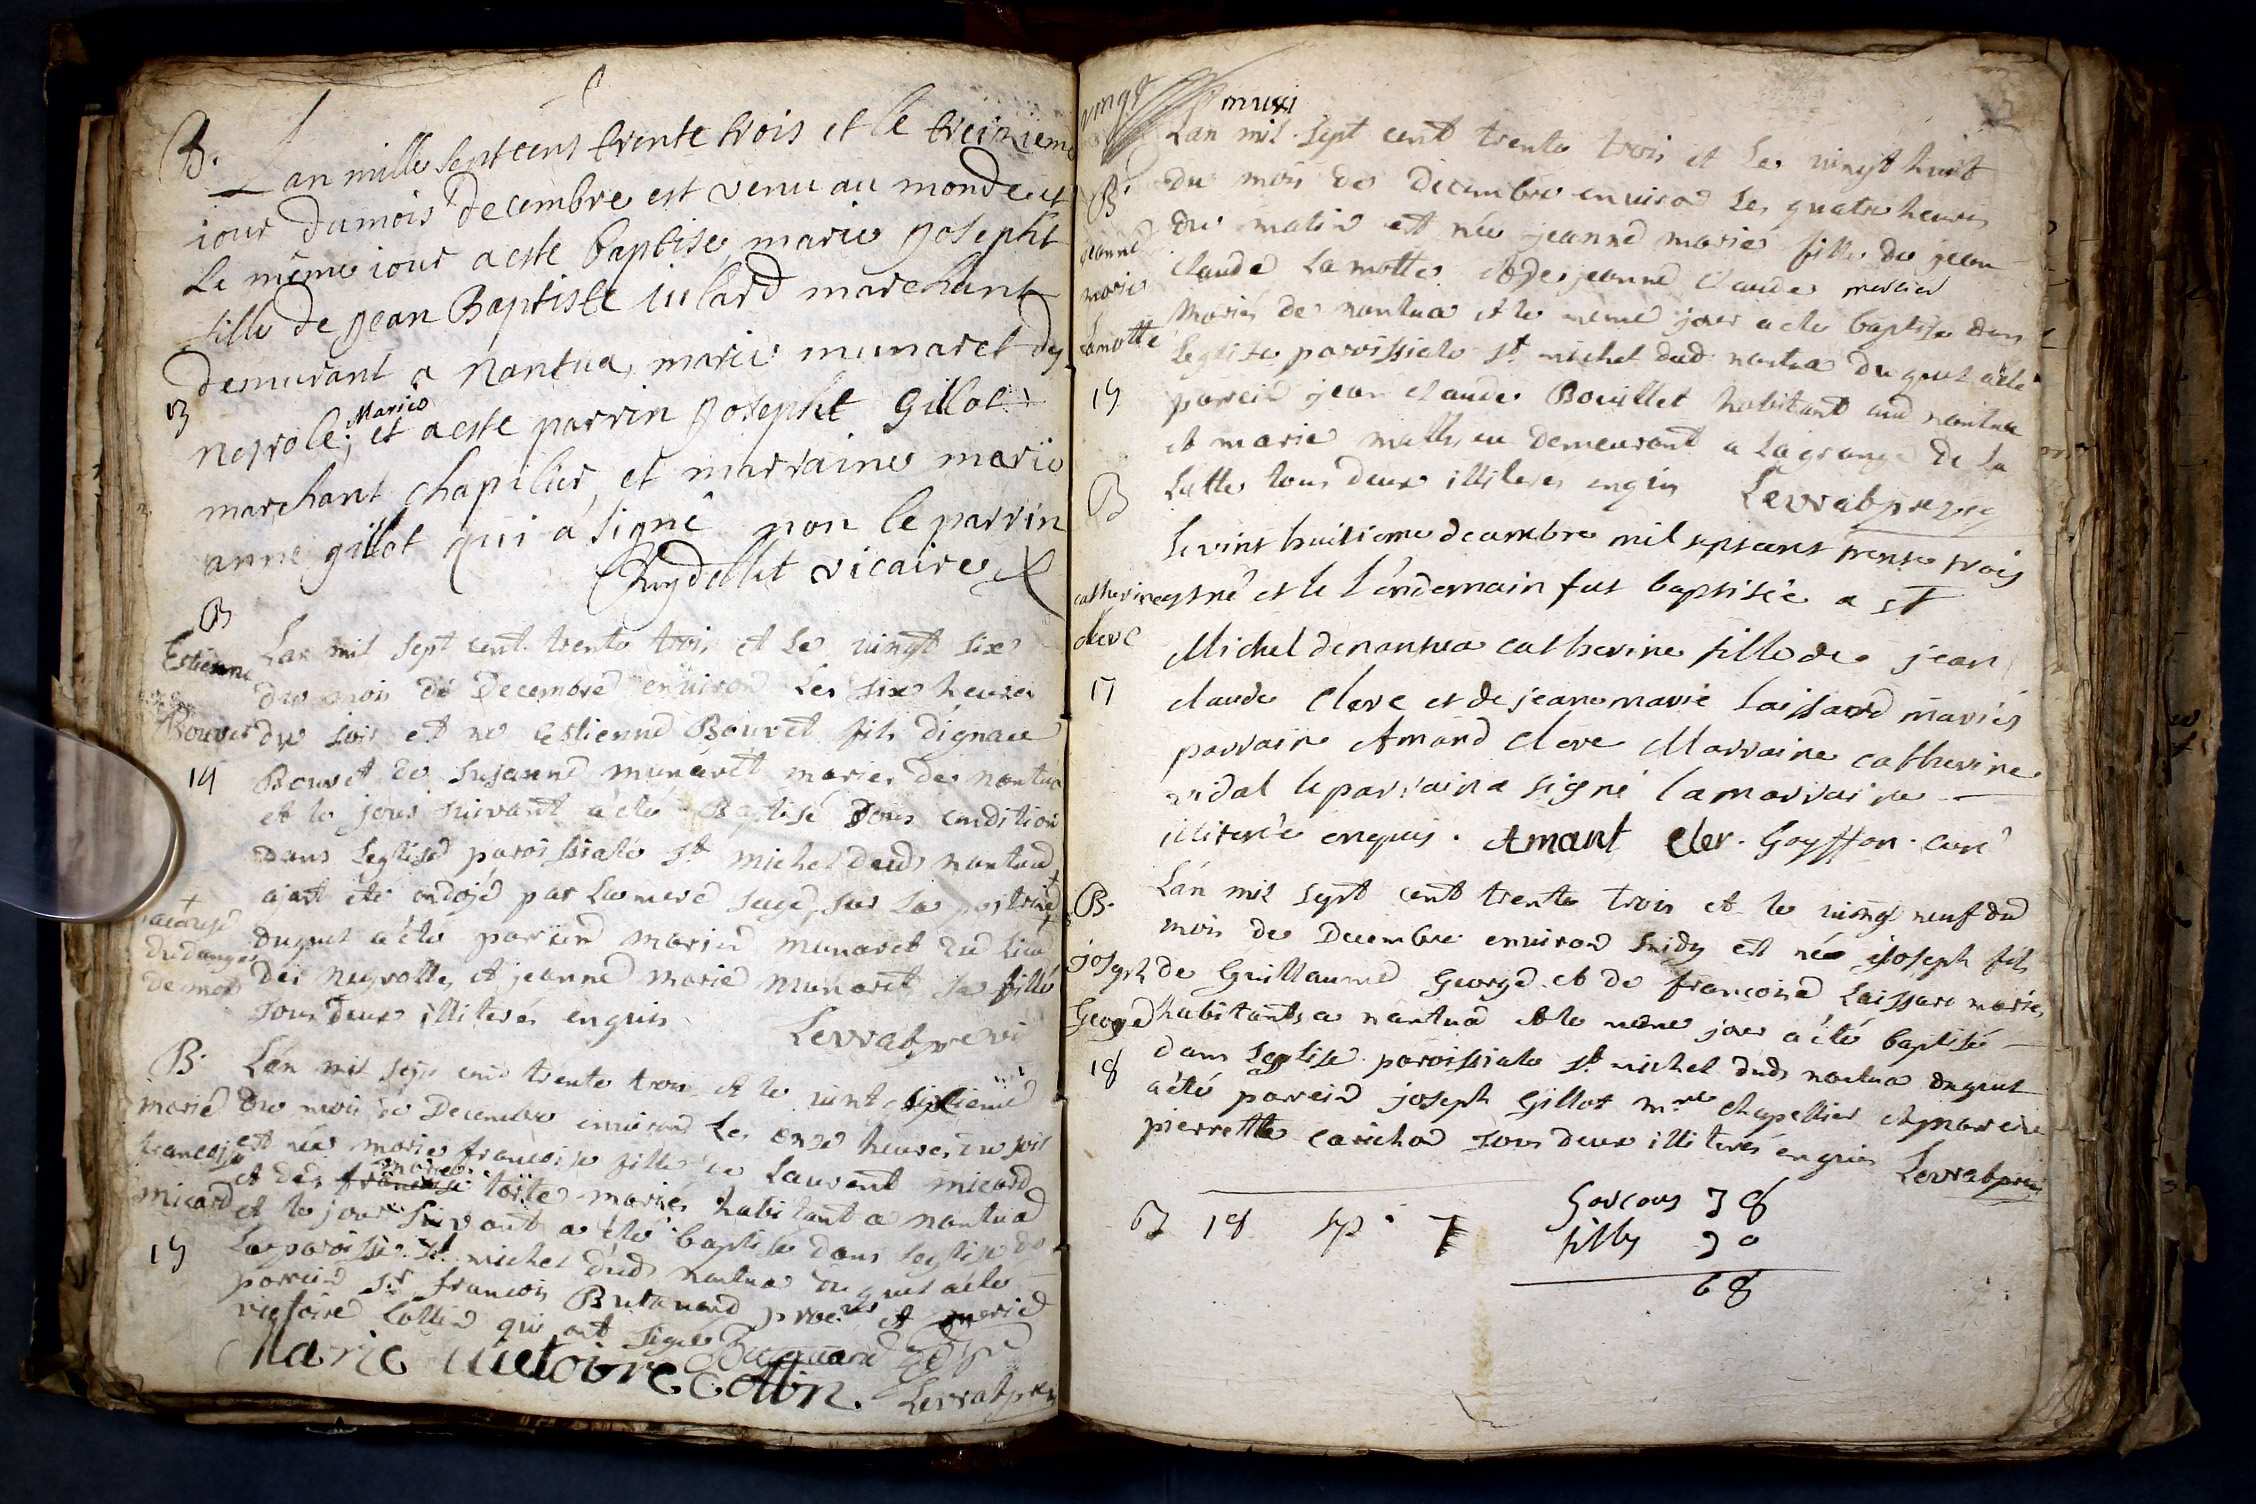 B.
Lan mille sept cens trente trois et le treizieme
iour du mois decembre est venu au monde et
le même iour a esté baptise marie Josepht
fille de Jean Baptiste iulard marchant
demurant a Nantua, marie munaret de
13
neprole; Maries et a esté parrin Josepht Gillot
marchant chapilier, et marraine marie
anne gillot qui a signé non le parrin
vicaire
B
Estienne
Bouret
14
Lan mil sept cent trente trois et le vingt six
du mois de Decembre environ les six heures
du soir est né Estienne Bouret fils dignace
Bouret de susanne munaret maries de nantua
et le jour suivant a été Baptisé sous condition
dans leglise paroissiale st michel dud nantua
ajant été ondojé par la mere sage, sur la poitrine +
+ a cause
du danger
de mort
duquel a été parrein marin munaret du lieu
des neyrolles et jeanne marie munaret sa fille
tous deux illiterés enquis
Levrat pre vi
B.
marie
francoise
micard
15
Lan mil sept cent trente trois et le vint septieme
du mois de Decembre environ les onze heures du soir
est née marie francoise fille de Laurent micard
et de francoise marie maries habitant a nantua
et le jour suivant a été baptise dans leglise de
la paroisse st michel dud nantua duquel a été
parrein sr francois et marie
victoire Collin qui ont signé
Marie victoire Collin.
Levrat pre vi
vingt
B.
jeanne
marie
Lamotte
15
Lan mil sept cent trente trois et le vingt huit
du mois de Decembre environ les quatre heures
du matin est née jeanne marie fille de jean
claude Lamotte et de jeanne claude mercier
mariés de nantua et le meme jour a ete baptise dans
leglise paroissiale st michel dud nantua duquel a été
parrein jean claude Bouillet habitant aud nantua
et marie mathieu demeurant a la grange de la
Lutte tous deux illiteres enquis Levrat pre vi
B
catherine
clerc
17
Le vint huitieme decembre mil septcent trente trois
est né et le lendemain fut baptisée a st
Michel de nantua catherine fille de jean
claude clerc et de jeanne marie Laissard mariés
parrain Amand clerc Marraine catherine
vidal le parrain a signé la marraine
illiterée enquis. Amant cler. Goyffon curé
B.
joseph
George
18
Lan mil sept cent trente trois et le vingt neuf du
mois de Decembre environ midy est né joseph fils
de Guillaume George et de francoise Laissard mariés
habitants a nantua et le meme jour a été baptisé
dans leglise paroissiale st michel dud nantua duquel
a été parrein joseph Gillot chapellier et mareine
pierrette carichon tous deux illiterés enquis Levrat pre vi
67 18 sp. 7
Garcons 38
filles 30
68